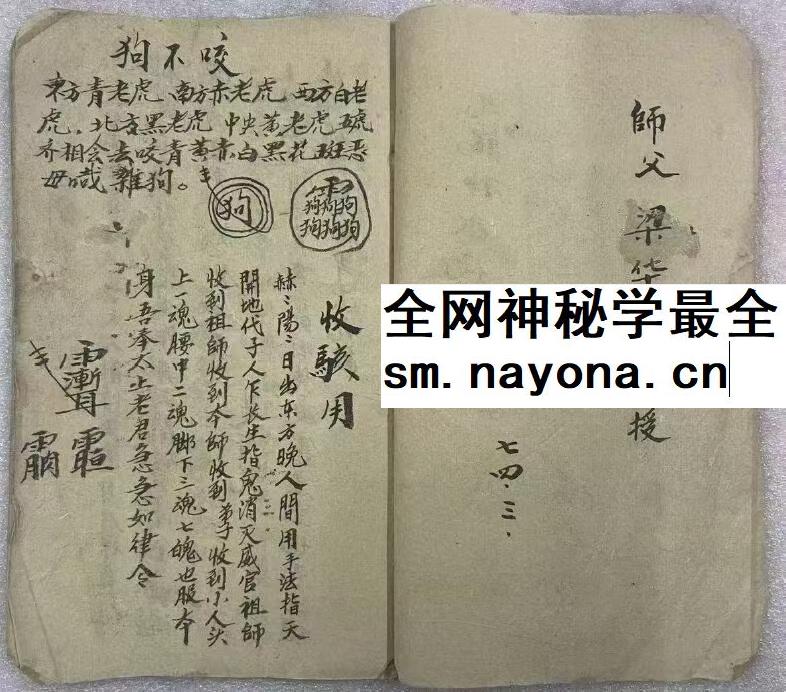 狗不咬
东方青老虎 南方赤老虎 西方白老
虎。北方黑老虎 中央黄老虎 五虎
齐相会去咬青黄赤白黑花斑恶
狗
收骇用
赫〻陽〻日出东方晚人間用手法指天
開地代子人乍长生指鬼消灭威官祖師
收到祖師收到本師收到弟子收到小人头
上一魂腰中二魂脚下三魂七魄也服本
身吾奉太上老君急急如律令
師父 梁华
授
七四.三.
全网神秘学最全
sm.nayona.cn